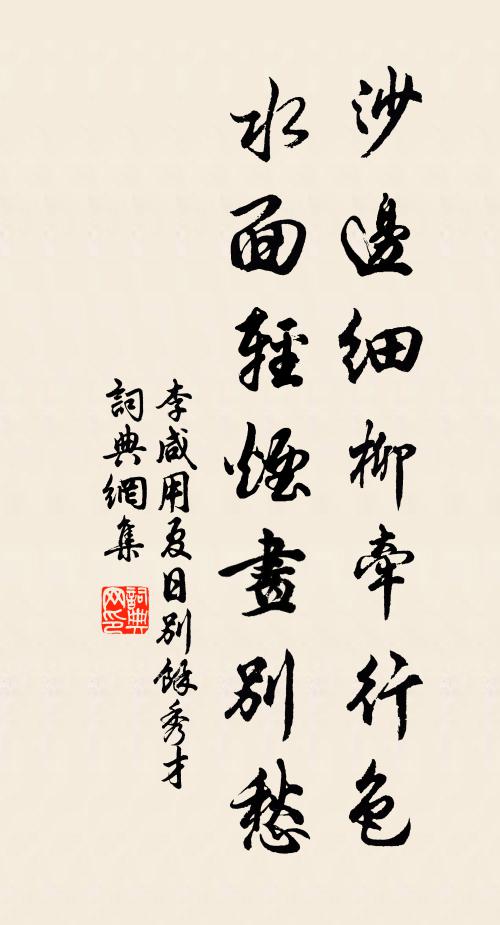 沙邊細柳牽行色
水面輕煙畫別愁
李咸用夏日別餘秀才
詞典網集
詞典网印